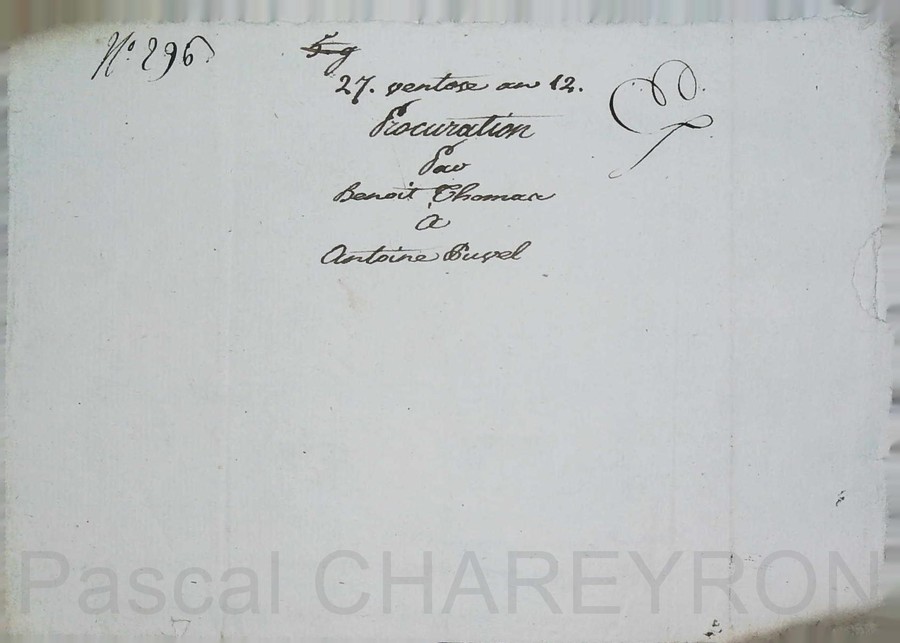 N.º 296
59
27. ventose an 12.
Procuration
Par
Benoit Thomas
A
Antoine
Pascal CHAREYRON